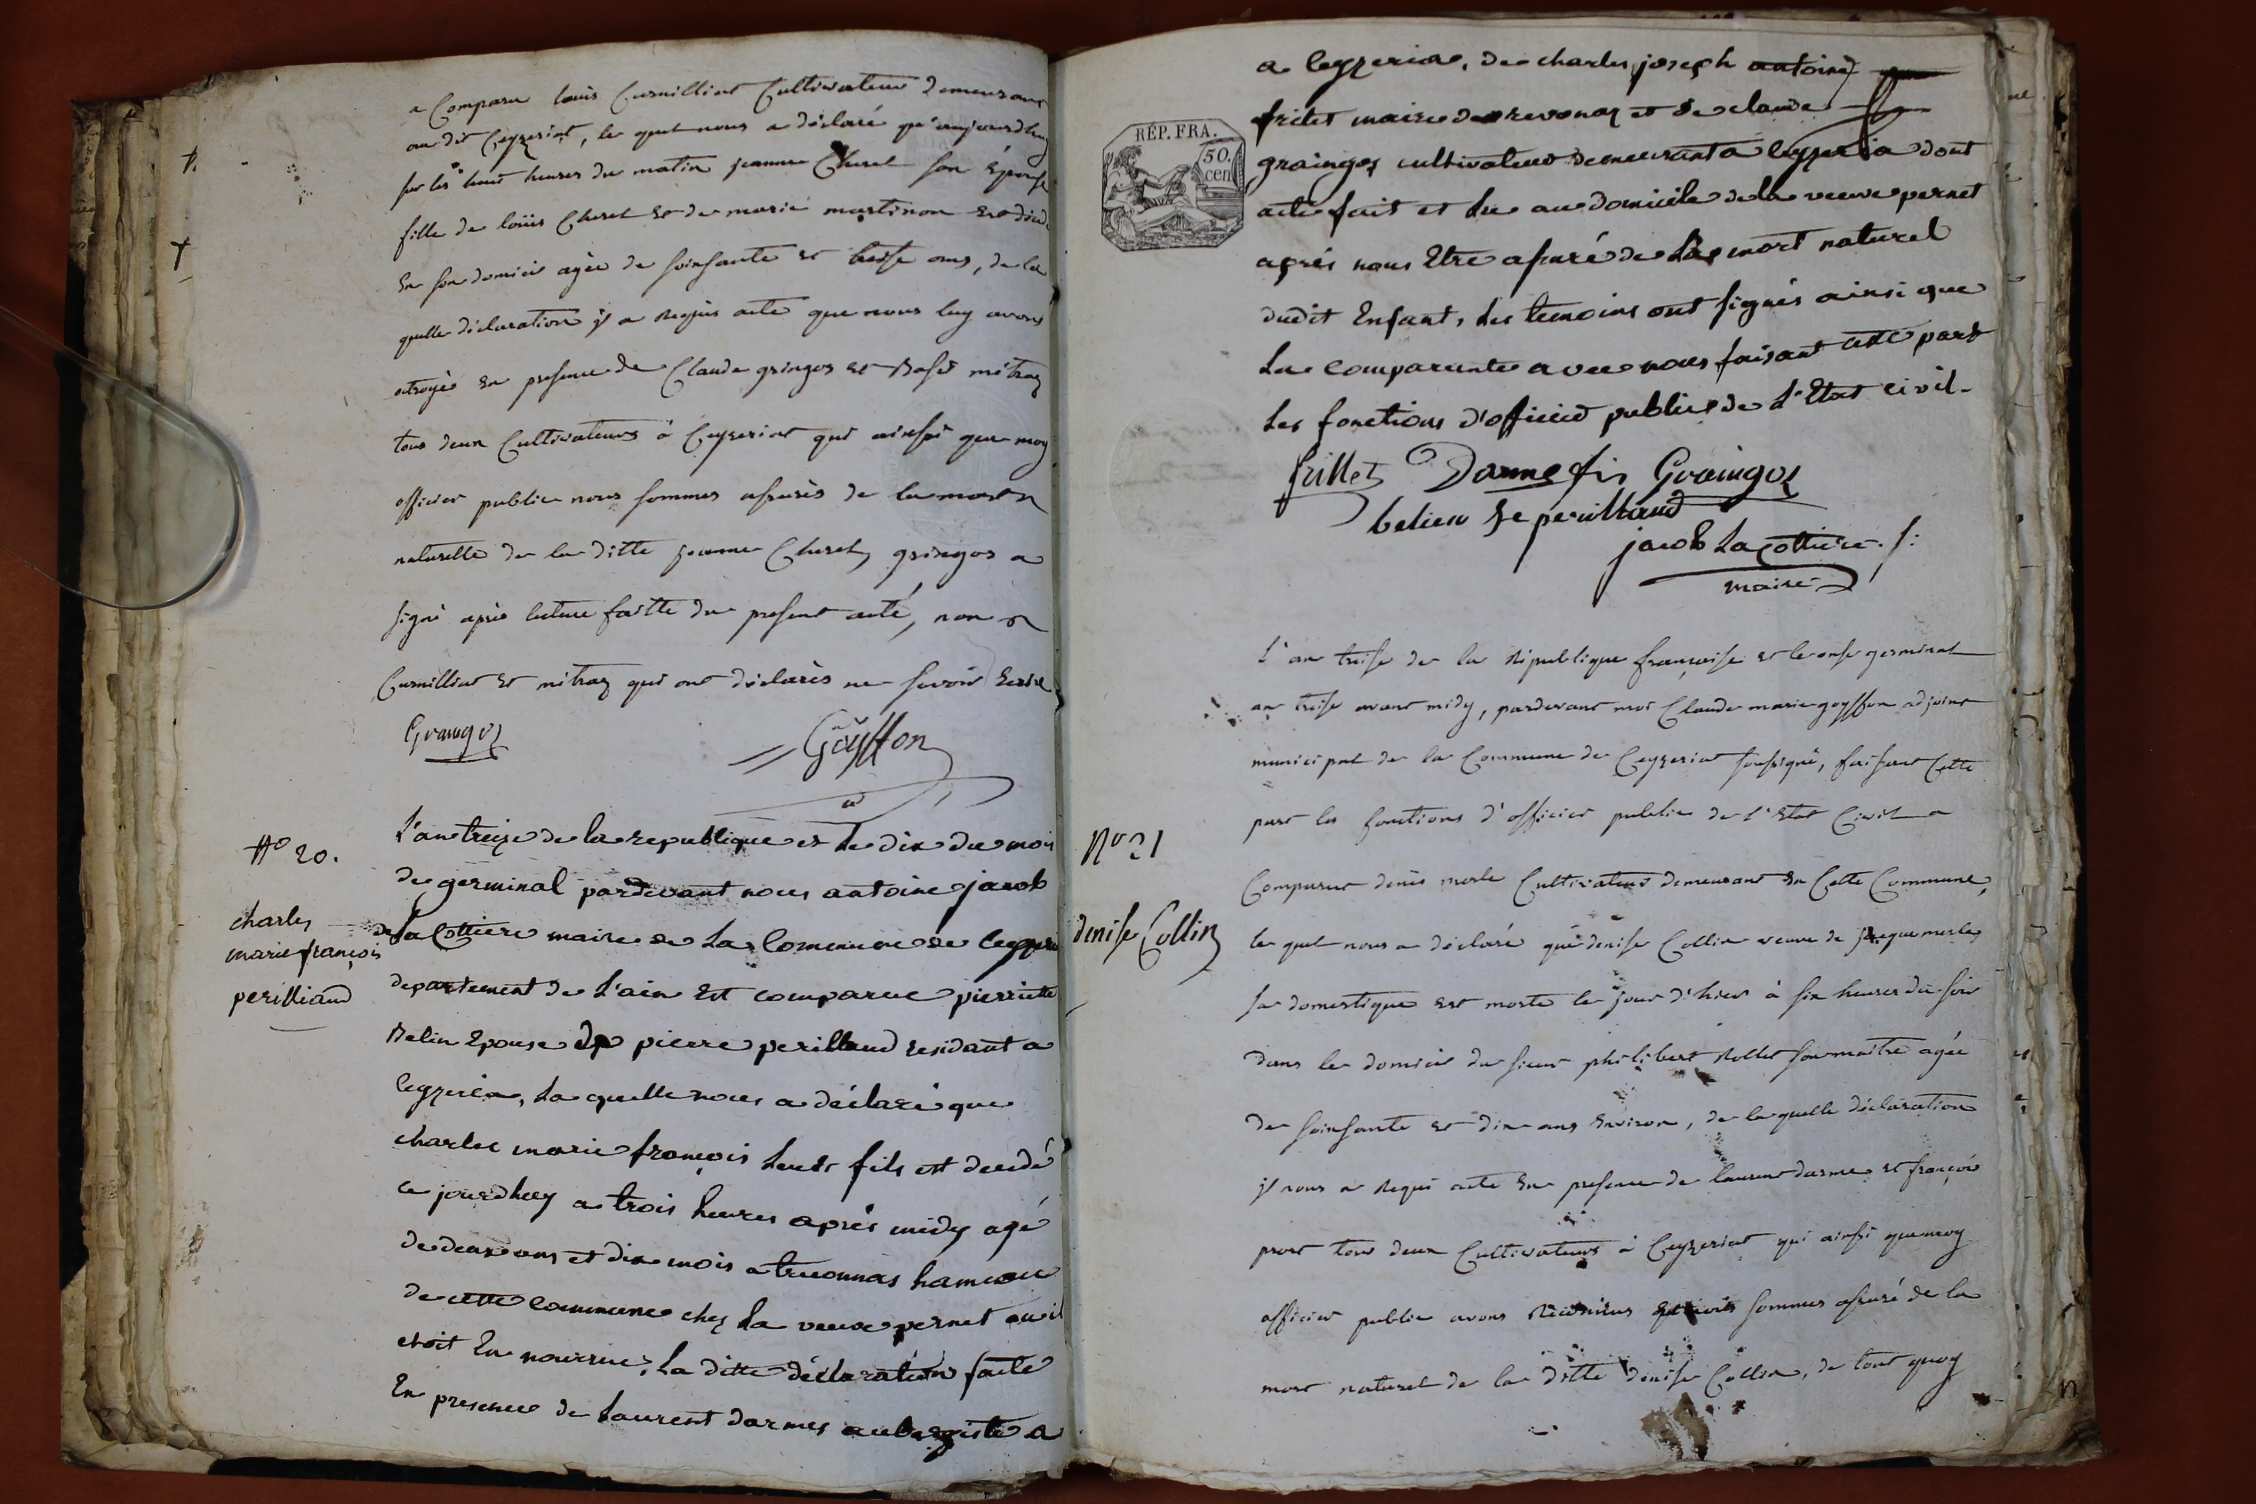 a Comparu louis Curnilliat Cultivateur demeurant
au dit Ceyzeriat, le quel nous a déclaré qu'aujourdhuy
sur les huit heures du matin jeanne Churet son Épouse
fille de loüis Churet et de marie martinon est décédé
En son domicir agée de soinsante et treise ans, de la
quelle déclaration il a requis acte que nous luy avons
otroyé En presence de Claude gringoz et métraz
tous deux Cultivateurs à Ceyzeriat qui ainssi que moy
officier public nous sommes assurés de la mort
naturelle de la ditte jeanne Churet, gringoz a
signé après lecture faitte du present acte, non
Curnilliat et métraz qui ont déclarés ne savoir Ecrire
Graingoz Goÿffon
N° 20.
charles
marie françois
perilliaud
L'an treize de la republique et le dix du mois
de germinal pardevant nous antoine jacob
de la Cottiere maire de la Commune de Ceyzeria
departement de L'ain Est comparue pierrette
Belin Epouse de pierre perilliaud residant a
Ceyzeria, la quelle nous a déclaré que
charles marie françois leur fils est décédé
ce jourdhuy a trois heures après midy agé
de deux ans et dix mois a treconnas hameau
de cette commune chez la veuve pernet ou il
etoit En nourrice, la ditte déclaration faite
En presence de Laurent darmes aubergiste a
RÉP. FRA.
50.
cen
a Ceyzeria, de charles joseph antoine
frilet maire de revonaz et de claude
graingoz cultivateur demeurant a Ceyzeria dont
acte fait et Lu au domicile de la veuve pernet
après nous Etre assuré de la mort naturel
dudit Enfant, les temoins ont signés ainsi que
La comparante avec nous faisant cette part
Les fonctions d'officier public de L'Etat civil.
frillet Darme fis Graingoz
belien fe perilliaud
jacob Lacottiere
maire
N° 21
denise Collin
L'an treise de la république française et le onse germinal
an treise avant midy, pardevant moi Claude marie goyffon adjoint
municipal de la Commune de Ceyzeriat soussigné, faisant Cette
part les fonctions d'officier public de l'Etat Civil a
Comparut denis merle Cultivateur demeurant En Cette Commune,
le quel nous a déclaré que denise Collin veuve de merle,
sa domestique est morte le jour d'hier à six heures du soir
dans le domicir du sieur philibert Rollet son maitre agée
de soinsante et dix ans Environ, de la quelle déclaration
il nous a requi acte En presence de laurent darme et françois
prost tous deux Cultivateurs à Ceyzeriat qui ainssi que moy
officier public avons sommes assuré de la
mort naturel de la ditte denise Collin, de tout quoy